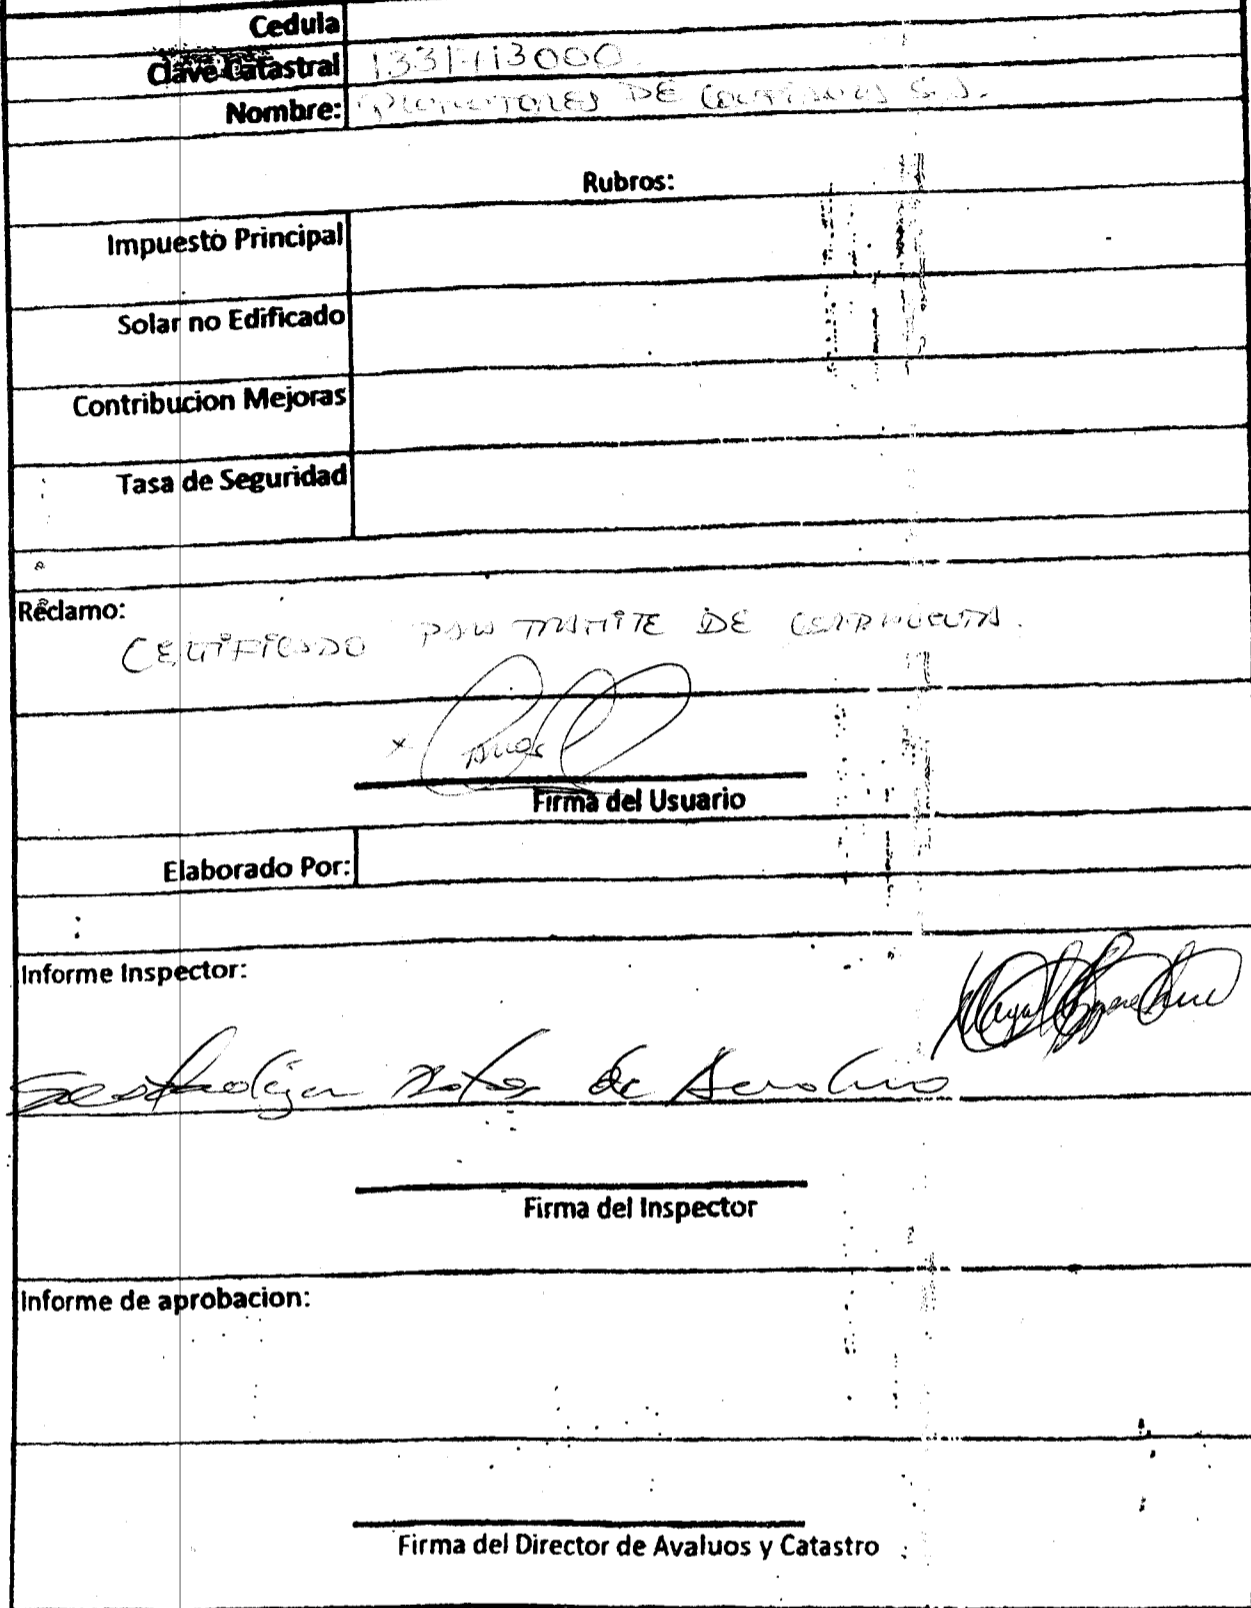 Cedula
Clave Catastral 1331113000
Nombre: PROMOTORES DE S.A.
Rubros:
Impuesto Principal
Solar no Edificado
Contribucion Mejoras
Tasa de Seguridad
Reclamo:
CERTIFICADO PARA TRAMITE DE COMPRAVENTA.
Firma del Usuario
Elaborado Por:
Informe Inspector:
de
Firma del Inspector
Informe de aprobacion:
Firma del Director de Avaluos y Catastro